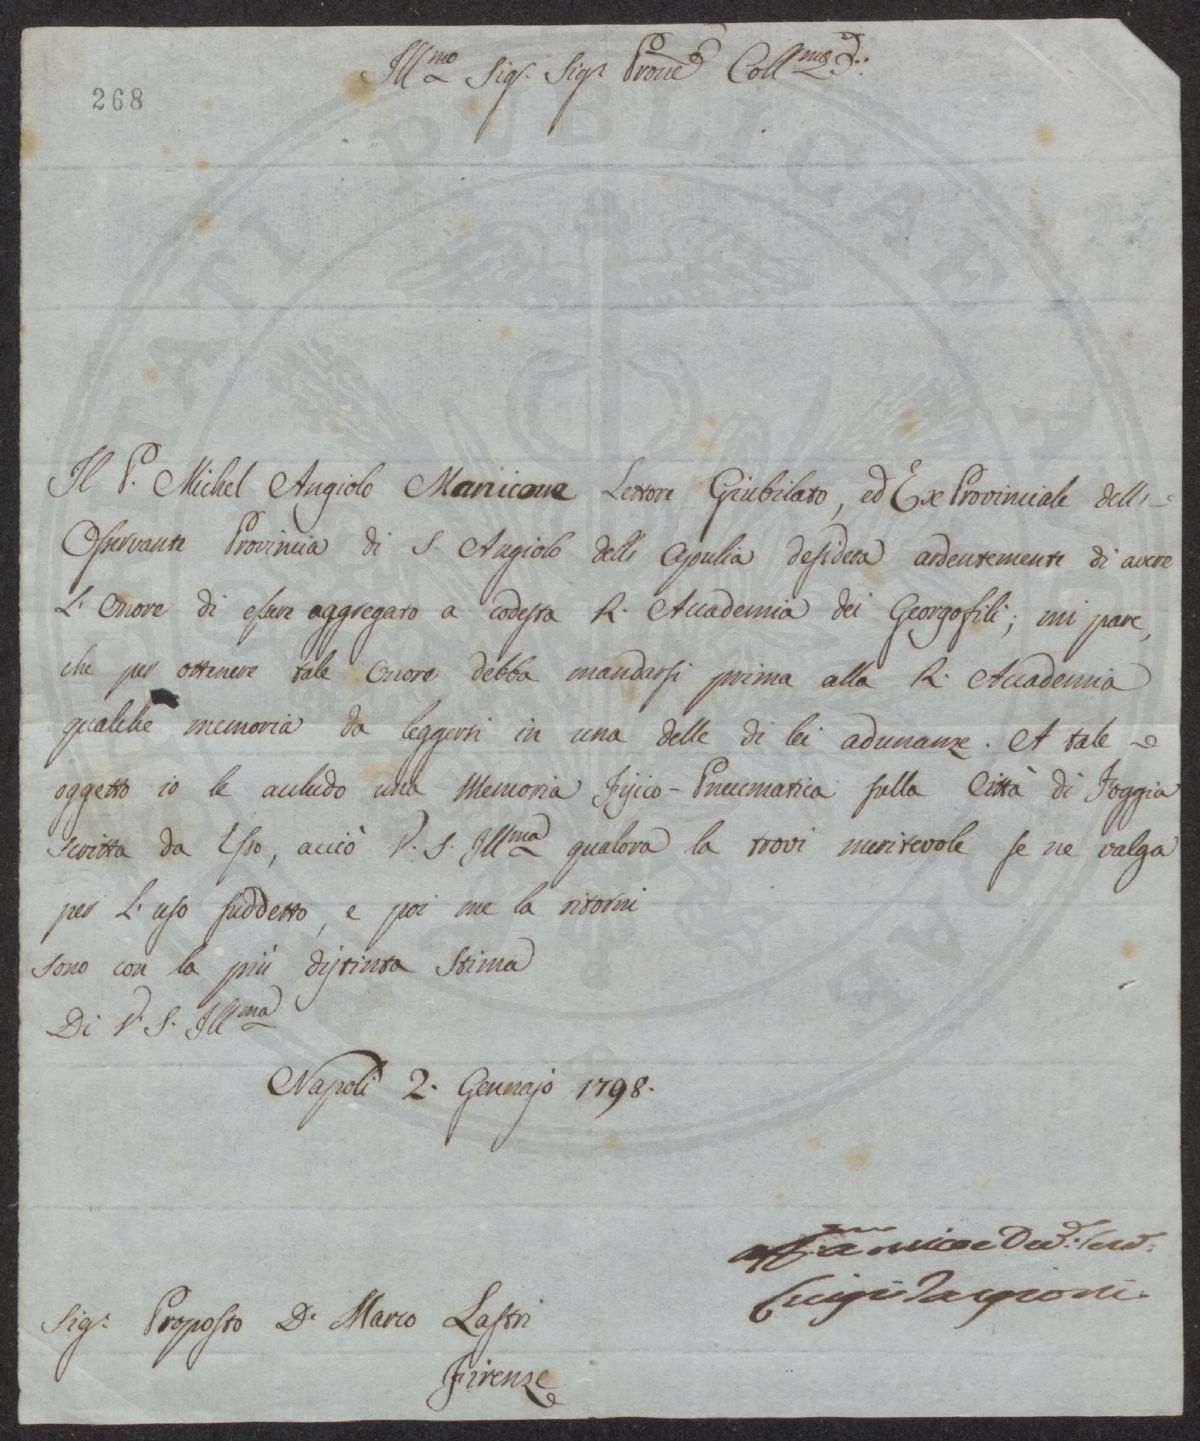 268
Ill.mo Sig.r Sig.r Prone Coll.mo
Il P. Michel Angiolo Manicone Lettore Giubilato, ed Ex Provinciale dell'
Osservante Provincia di S. Angiolo dell' Apulia desidera ardentemente di avere
L'onore di essere aggregato a codesta R. Accademia dei Georgofili; mi pare,
che per ottenere tale onore debba mandarsi prima alla R. Accademia
qualche memoria da leggersi in una delle di lei adunanze. A tale
oggetto io le accludo una Memoria Fisico-Pneumatica sulla Città di Foggia
scritta da Esso, acciò V. S. Ill.ma qualora la trovi meritevole se ne valga
per L'uso suddetto, e poi me la ritorni
Sono con la più distinta Stima
Di V. S. Ill.ma
Napoli 2. Gennajo 1798.
aff.mo amico e Dev. Serv.
Luigi Targioni
Sig.r Proposto D. Marco Lastri
Firenze
PUBLICAE